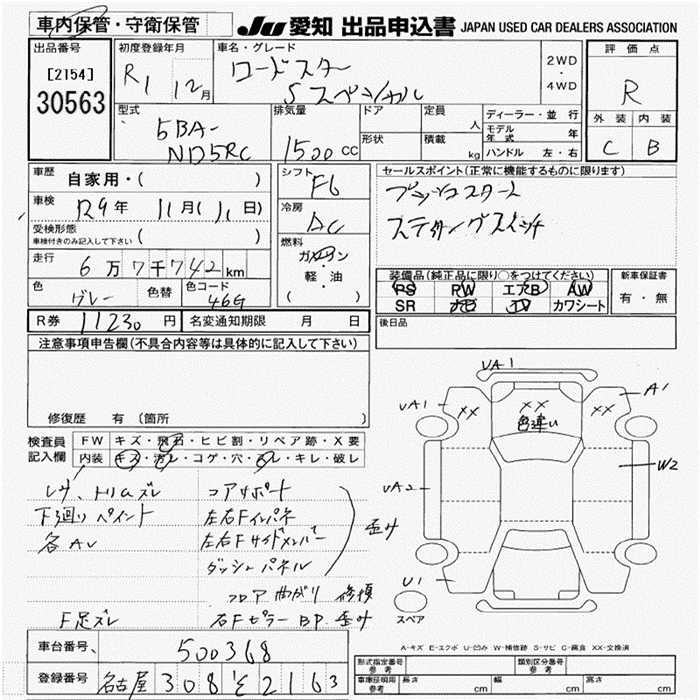 車内保管・守衛保管
JU 愛知 出品申込書 JAPAN USED CAR DEALERS ASSOCIATION
出品番号
[2154]
30563
初度登録年月
R1 12月
車名・グレード
ロードスター
Sスペシャル
2WD
・
4WD
評価点
R
外装 内装
C B
型式
5BA-
ND5RC
排気量
1500 cc
ドア
形状
定員 人
積載 kg
ディーラー・並行
モデル年式 年
ハンドル 左・右
車歴
自家用・( )
車検 R9年 11月(11日)
受検形態
車検付きのみ記入して下さい ( )
走行 6万7千742km
色 グレー 色替 色コード 46G
シフト F6
冷房 AC
燃料
ガソリン
・
軽・油
( )
セールスポイント(正常に機能するものに限ります)
プッシュスタート
ステアリングスイッチ
装備品(純正品に限り○をつけてください)
PS PW エアB AW
SR ナビ TV カワシート
新車保証書
有・無
R券 11230円 名変通知期限 月 日
後日品
注意事項申告欄(不具合内容等は具体的に記入して下さい)
修復歴 有(箇所 )
検査員
記入欄
FW キズ・飛石・ヒビ割・リペア跡・X要
内装 キズ・汚レ・コゲ・穴・スレ・キレ・破レ
レザ、トリムズレ
下廻りペイント
各AU
F足ズレ
コアサポート
左右Fインパネ
左右Fサイドメンバー
ダッシュパネル
歪み
フロア曲がり 修複
右FピラーBP 歪み
UA1
UA1
XX
XX
色違い
XX
A1
W2
UA2
U1
スペア
A-キズ E-エクボ U-凹み W-補修跡 S-サビ C-腐食 XX-交換済
車台番号 500368
登録番号 名古屋 308 そ 2163
形式指定番号
参考
類別区分番号
参考
車庫証明用
参考
長さ cm 幅 cm 高さ cm